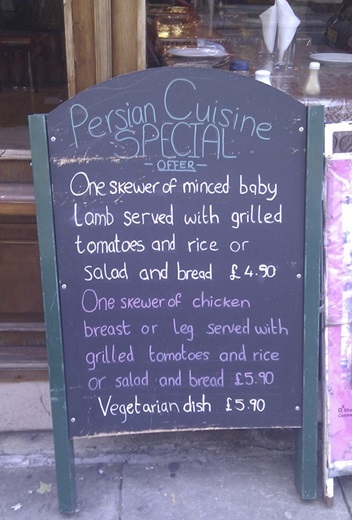 Persian Cuisine
SPECIAL
- OFFER -
One skewer of minced baby
lamb served with grilled
tomatoes and rice or
salad and bread £4.90
One skewer of chicken
breast or leg served with
grilled tomatoes and rice
or salad and bread £5.90
Vegetarian dish £5.90